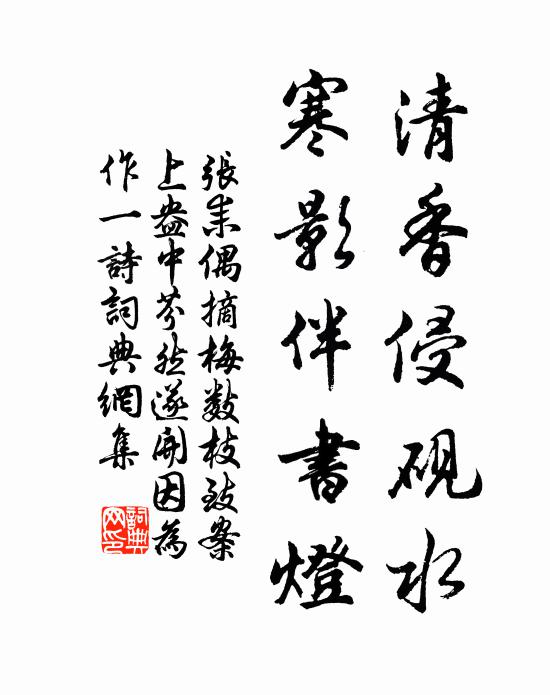 清香侵硯水
寒影伴書燈
張耒偶摘梅數枝致案
上盎中芬然遂開因為
作一詩詞典網集
詞典網印